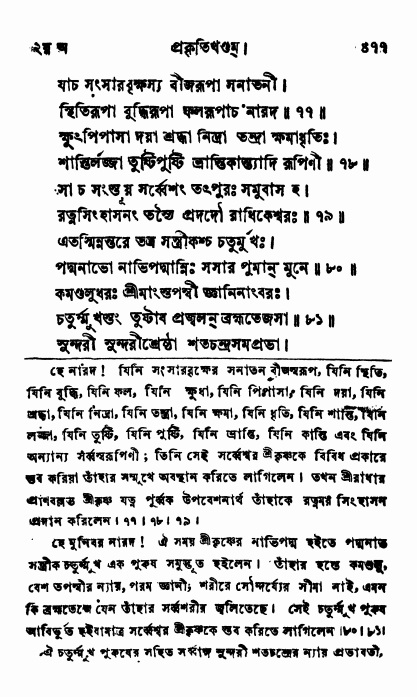 ২য় অ প্রকৃতিখণ্ডম্। ৪৭৭
যাচ সংসারবৃক্ষস্য বীজরূপা সনাতনী।
স্থিতিরূপা বুদ্ধিরূপা ফলরূপাচ নারদ॥ ৭৭॥
ক্ষুৎপিপাসা দয়া শ্রদ্ধা নিদ্রা তন্দ্রা ক্ষমাধৃতিঃ।
শান্তির্লজ্জা তুষ্টিপুষ্টি ভ্রান্তিকান্ত্যাদি রূপিণী॥ ৭৮॥
সা চ সংস্তূয় সর্ব্বেশং তৎপুরঃ সমুবাস হ।
রত্নসিংহাসনং তস্যৈ প্রদদৌ রাধিকেশ্বরঃ॥ ৭৯॥
এতস্মিন্নন্তরে তত্র সস্ত্রীকশ্চ চতুর্মুখঃ।
পদ্মনাভো নাভিপদ্মান্নিঃ সসার পুমান্ মুনে॥ ৮০॥
কমণ্ডলুধরঃ শ্রীমাংস্তপস্বী জ্ঞানিনাংবরঃ।
চতুর্ম্মুখস্তং তুষ্টাব প্রজ্বলন্ ব্রহ্মতেজসা॥ ৮১॥
সুন্দরী সুন্দরীশ্রেষ্ঠা শতচন্দ্রসমপ্রভা।
হে নারদ! যিনি সংসারবৃক্ষের সনাতন বীজস্বরূপ, যিনি স্থিতি,
যিনি বুদ্ধি, যিনি ফল, যিনি ক্ষুধা, যিনি পিপাসা, যিনি দয়া, যিনি
শ্রদ্ধা, যিনি নিদ্রা, যিনি তন্দ্রা, যিনি ক্ষমা, যিনি ধৃতি, যিনি শান্তি, যিনি
লজ্জা, যিনি তুষ্টি, যিনি পুষ্টি, যিনি ভ্রান্তি, যিনি কান্তি এবং যিনি
অন্যান্য সর্ব্বস্বরূপিণী; তিনি সেই সর্ব্বেশ্বর শ্রীকৃষ্ণকে বিবিধ প্রকারে
স্তব করিয়া তাঁহার সম্মুখে অবস্থান করিতে লাগিলেন। তখন শ্রীরাধার
প্রাণবল্লভ শ্রীকৃষ্ণ যত্ন পূর্ব্বক উপবেশনার্থ তাঁহাকে রত্নময় সিংহাসন
প্রদান করিলেন। ৭৭। ৭৮। ৭৯।
হে মুনিবর নারদ! ঐ সময় শ্রীকৃষ্ণের নাভিপদ্ম হইতে পদ্মনাভ
সস্ত্রীক চতুর্ম্মুখ এক পুরুষ সমুদ্ভূত হইলেন। তাঁহার হস্তে কমণ্ডলু,
বেশ তপস্বীর ন্যায়, পরম জ্ঞানী; শরীরে সৌন্দর্য্যের সীমা নাই, এমন
কি ব্রহ্মতেজে যেন তাঁহার সর্ব্বশরীর জ্বলিতেছে। সেই চতুর্ম্মুখ পুরুষ
আবির্ভূত হইবামাত্র সর্ব্বেশ্বর শ্রীকৃষ্ণকে স্তব করিতে লাগিলেন।৮০।৮১।
ঐ চতুর্ম্মুখ পুরুষের সহিত সর্ব্বাঙ্গ সুন্দরী শতচন্দ্রের ন্যায় প্রভাবতী,